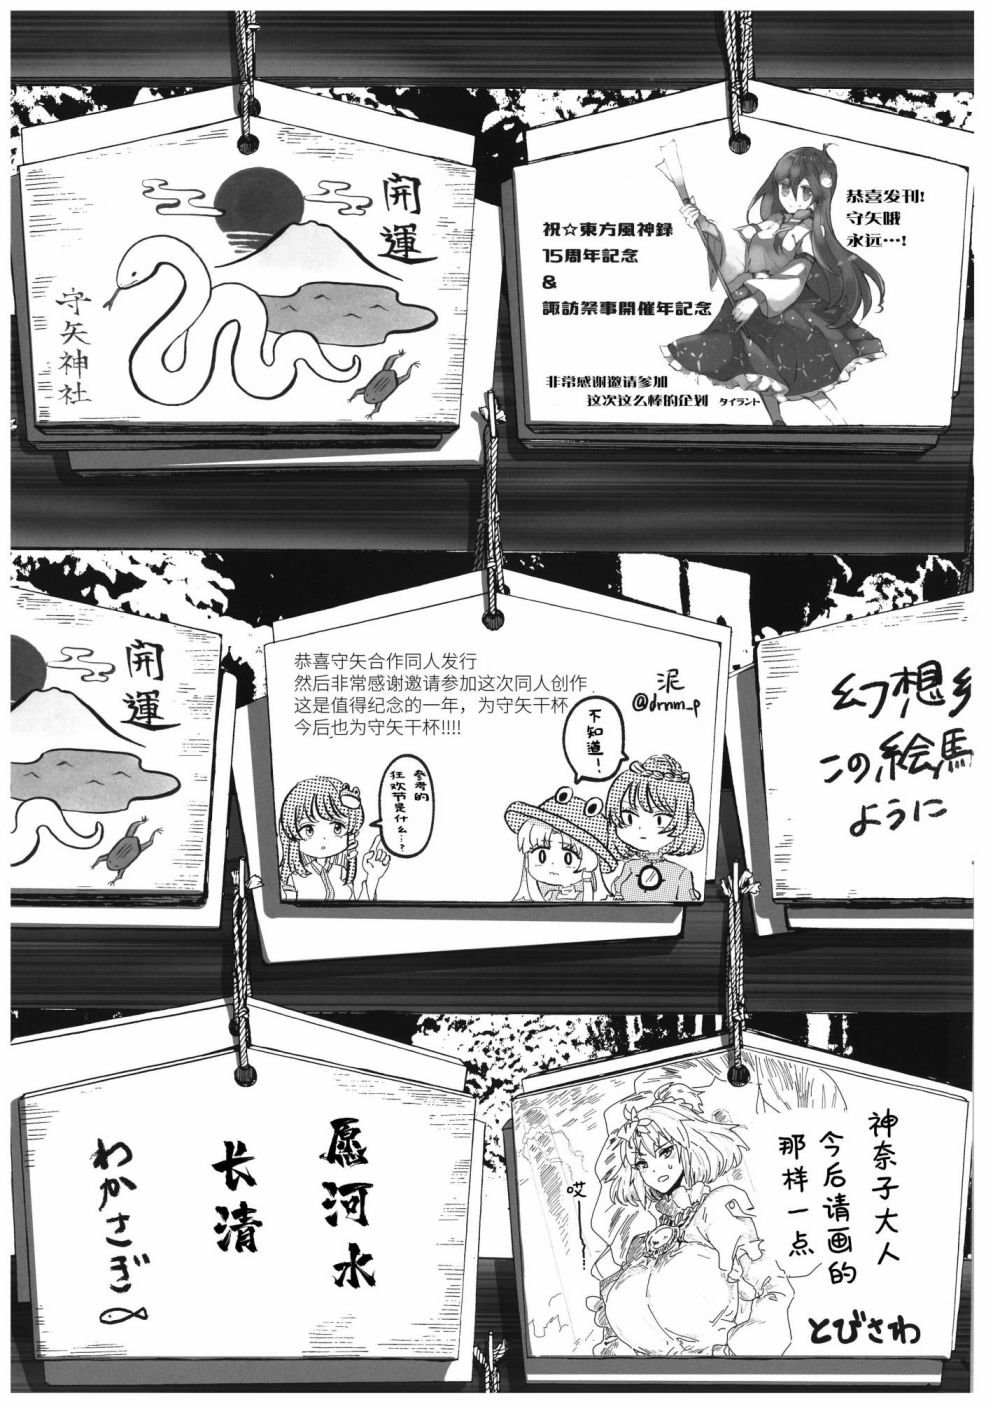 開運
守矢神社
祝☆東方風神録
15周年記念
&
諏訪祭事開催年記念
恭喜发刊!
守矢哦
永远…!
非常感谢邀请参加
这次这么棒的企划
タイラント
開運
恭喜守矢合作同人发行
然后非常感谢邀请参加这次同人创作
这是值得纪念的一年，为守矢干杯
今后也为守矢干杯!!!!
泥
@drnm_p
参考的
狂欢节是什么…?
不知道!
幻想
この絵馬
ように
愿河水
长清
わかさぎ
神奈子大人
今后请画的
那样一点
哎…
とびさわ